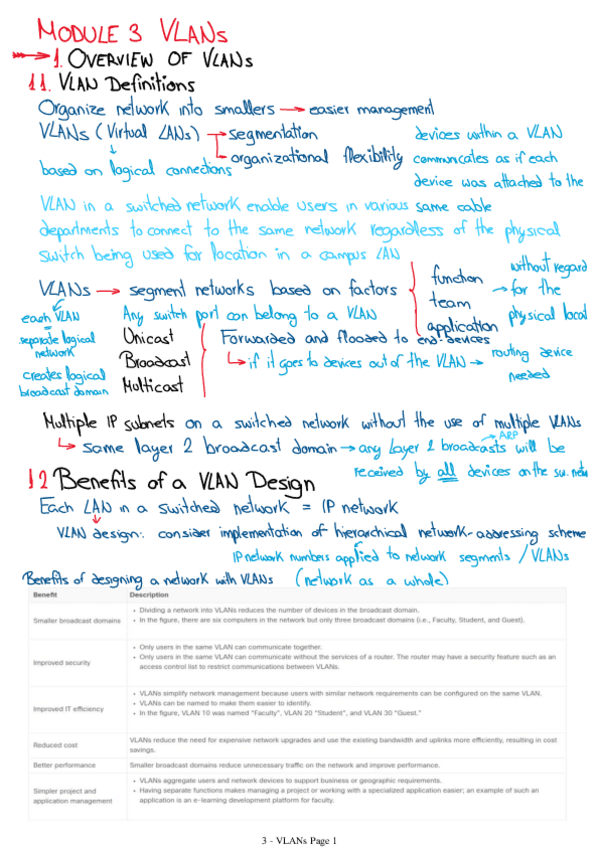 MODULE 3 VLANs
1. OVERVIEW OF VLANs
1.1. VLAN Definitions
Organize network into smallers → easier management
VLANs (Virtual LANs) → segmentation
organizational flexibility
based on logical connections
devices within a VLAN
communicates as if each
device was attached to the
same cable
VLAN in a switched network enable users in various
departments to connect to the same network regardless of the physical
switch being used for location in a campus LAN
VLANs → segment networks based on factors
function
team
application
without regard
→ for the
physical locat
each VLAN
separate logical
network
creates logical
broadcast domain
Any switch port can belong to a VLAN
Unicast
Broadcast
Multicast
Forwarded and flooded to end-devices
↳ if it goes to devices out of the VLAN → routing device
needed
Multiple IP subnets on a switched network without the use of multiple VLANs
↳ same layer 2 broadcast domain → any Layer 2 broadcasts will be
→ ARP
received by all devices on the sw. netw
1.2 Benefits of a VLAN Design
Each LAN in a switched network = IP network
VLAN design: consider implementation of hierarchical network-adressing scheme
IP network numbers applied to network segments / VLANs
Benefits of designing a network with VLANs (network as a whole)
Benefit Description
Smaller broadcast domains
• Dividing a network into VLANs reduces the number of devices in the broadcast domain.
• In the figure, there are six computers in the network but only three broadcast domains (i.e., Faculty, Student, and Guest).
Improved security
• Only users in the same VLAN can communicate together.
• Only users in the same VLAN can communicate without the services of a router. The router may have a security feature such as an
access control list to restrict communications between VLANs.
Improved IT efficiency
• VLANs simplify network management because users with similar network requirements can be configured on the same VLAN.
• VLANs can be named to make them easier to identify.
• In the figure, VLAN 10 was named "Faculty", VLAN 20 "Student", and VLAN 30 "Guest."
Reduced cost
VLANs reduce the need for expensive network upgrades and use the existing bandwidth and uplinks more efficiently, resulting in cost
savings.
Better performance
Smaller broadcast domains reduce unnecessary traffic on the network and improve performance.
Simpler project and
application management
• VLANs aggregate users and network devices to support business or geographic requirements.
• Having separate functions makes managing a project or working with a specialized application easier; an example of such an
application is an e-learning development platform for faculty.
3 - VLANs Page 1